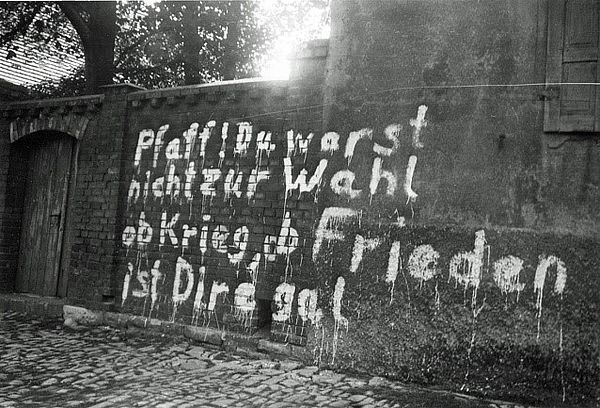 Pfaff! Du warst
nicht zur Wahl
ob Krieg, ob Frieden
ist Dir egal